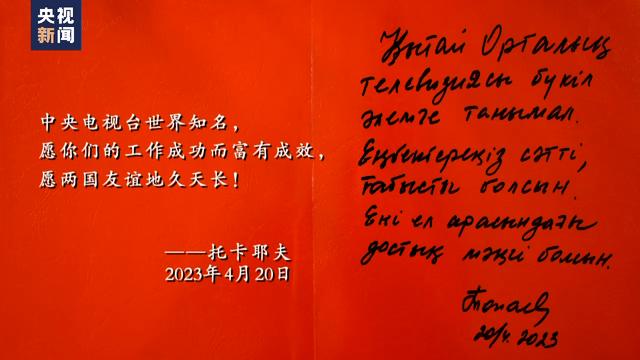 央视
新闻
中央电视台世界知名，
愿你们的工作成功而富有成效，
愿两国友谊地久天长！
——托卡耶夫
2023年4月20日
Қытай Орталық
телевизиясы бүкіл
әлемге танымал.
Еңбектеріңіз сәтті,
табысты болсын.
Екі ел арасындағы
достық мәңгі болсын.
20/4.2023